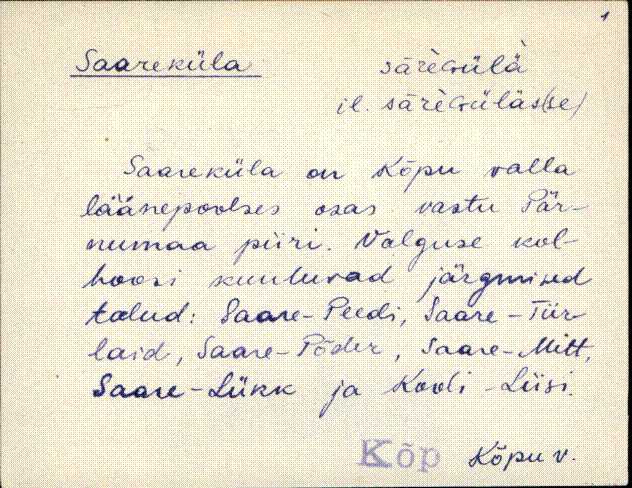 1
Saareküla sārèɢülä
il. sārèɢüläs(se)
Saareküla on Kõpu valla
läänepoolses osas vastu Pär-
numaa piiri. Valguse kol-
hoosi kuuluvad järgmised
talud: Saare-Peedi, Saare-Tiir
laid, Saare-Põder, Saare-Mitt,
Saare-Lükk ja Kooli-Liisi.
Kõp Kõpu v.